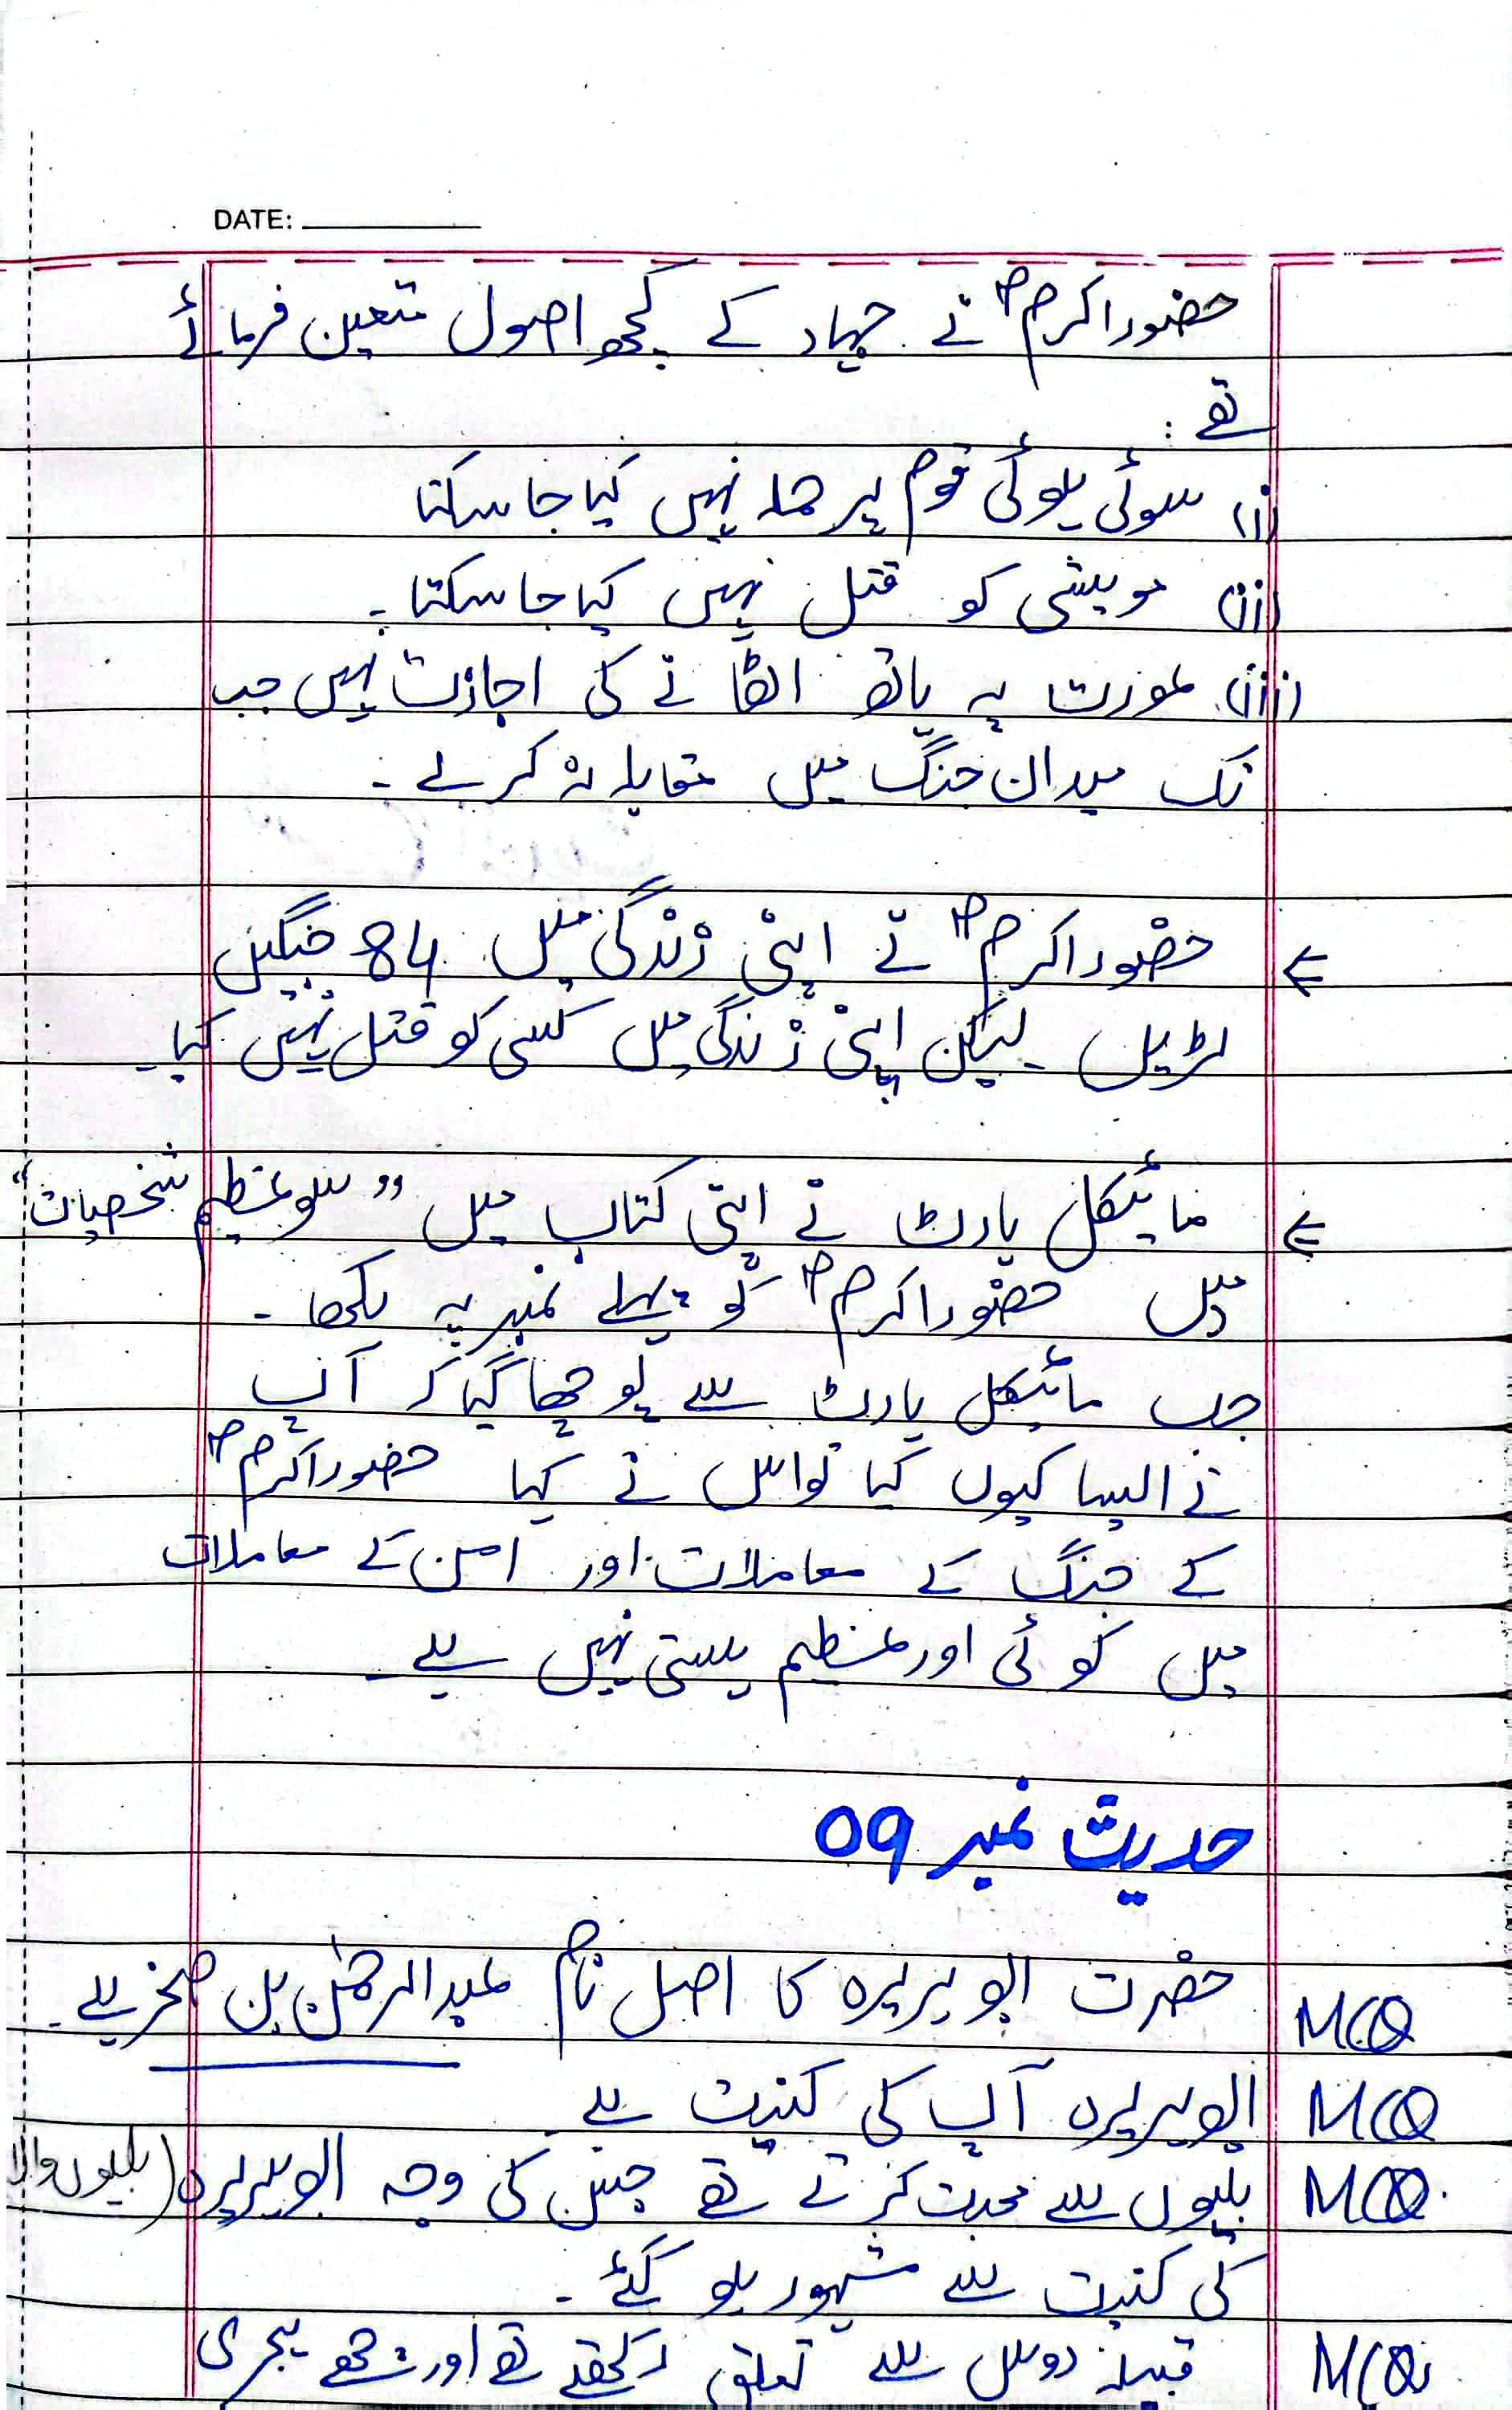 DATE:
حضور اکرم ؐ نے جہاد کے کچھ اصول متعین فرمائے
تھے :
(i) سوئی ہوئی قوم پر حملہ نہیں کیا جا سکتا
(ii) مویشی کو قتل نہیں کیا جا سکتا۔
(iii) عورت پہ ہاتھ اٹھانے کی اجازت نہیں جب
تک میدان جنگ میں مقابلہ نہ کرے ۔
⇐ حضور اکرم ؐ نے اپنی زندگی میں 84 جنگیں
لڑیں ۔ لیکن اپنی زندگی میں کسی کو قتل نہیں کیا۔
⇐ مائیکل ہارٹ نے اپنی کتاب میں ”سو عظیم شخصیات“
میں حضور اکرم ؐ کو پہلے نمبر پہ لکھا ۔
جب مائیکل ہارٹ سے پوچھا گیا کہ آپ
نے ایسا کیوں کیا تو اس نے کہا حضور اکرم ؐ
کے جنگ کے معاملات اور امن کے معاملات
میں کوئی اور عظیم ہستی نہیں ہے۔
حدیث نمبر 09
MCQ حضرت ابو ہریرہ کا اصل نام عبدالرحمٰن بن صخر ہے۔
MCQ ابو ہریرہ آپ کی کنیت ہے
MCQ. بلیوں سے محبت کرتے تھے جس کی وجہ ابو ہریرہ (بلیوں والا
کی کنیت سے مشہور ہو گئے ۔
MCQ قبیلہ دوس سے تعلق رکھتے تھے اور ہجری